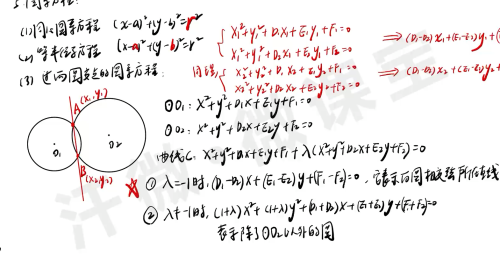 (1) 同心圆系方程 (x-a)²+(y-b)²=r²
(2) 等半径圆系方程 (x-a)²+(y-b)²=r²
(3) 过两圆交点的圆系方程:
x₁²+y₁²+D₁x₁+E₁y₁+F₁=0
x₁²+y₁²+D₂x₁+E₂y₁+F₂=0
⇒(D₁-D₂)x₁+(E₁-E₂)y₁+
同理
x₂²+y₂²+D₁x₂+E₁y₂+F₁=0
x₂²+y₂²+D₂x₂+E₂y₂+F₂=0
⇒(D₁-D₂)x₂+(E₁-E₂)y₂+
A(x₁,y₁)
O₁
O₂
B(x₂,y₂)
⊙O₁: x²+y²+D₁x+E₁y+F₁=0
⊙O₂: x²+y²+D₂x+E₂y+F₂=0
曲线C: x²+y²+D₁x+E₁y+F₁+λ(x²+y²+D₂x+E₂y+F₂)=0
① λ=-1时,(D₁-D₂)x+(E₁-E₂)y+(F₁-F₂)=0,它表示两圆相交弦所在直线
② λ≠-1时,(1+λ)x²+(1+λ)y²+(D₁+D₂)x+(E₁+E₂)y+(F₁+F₂)=0
表示除了⊙O₂以外的圆